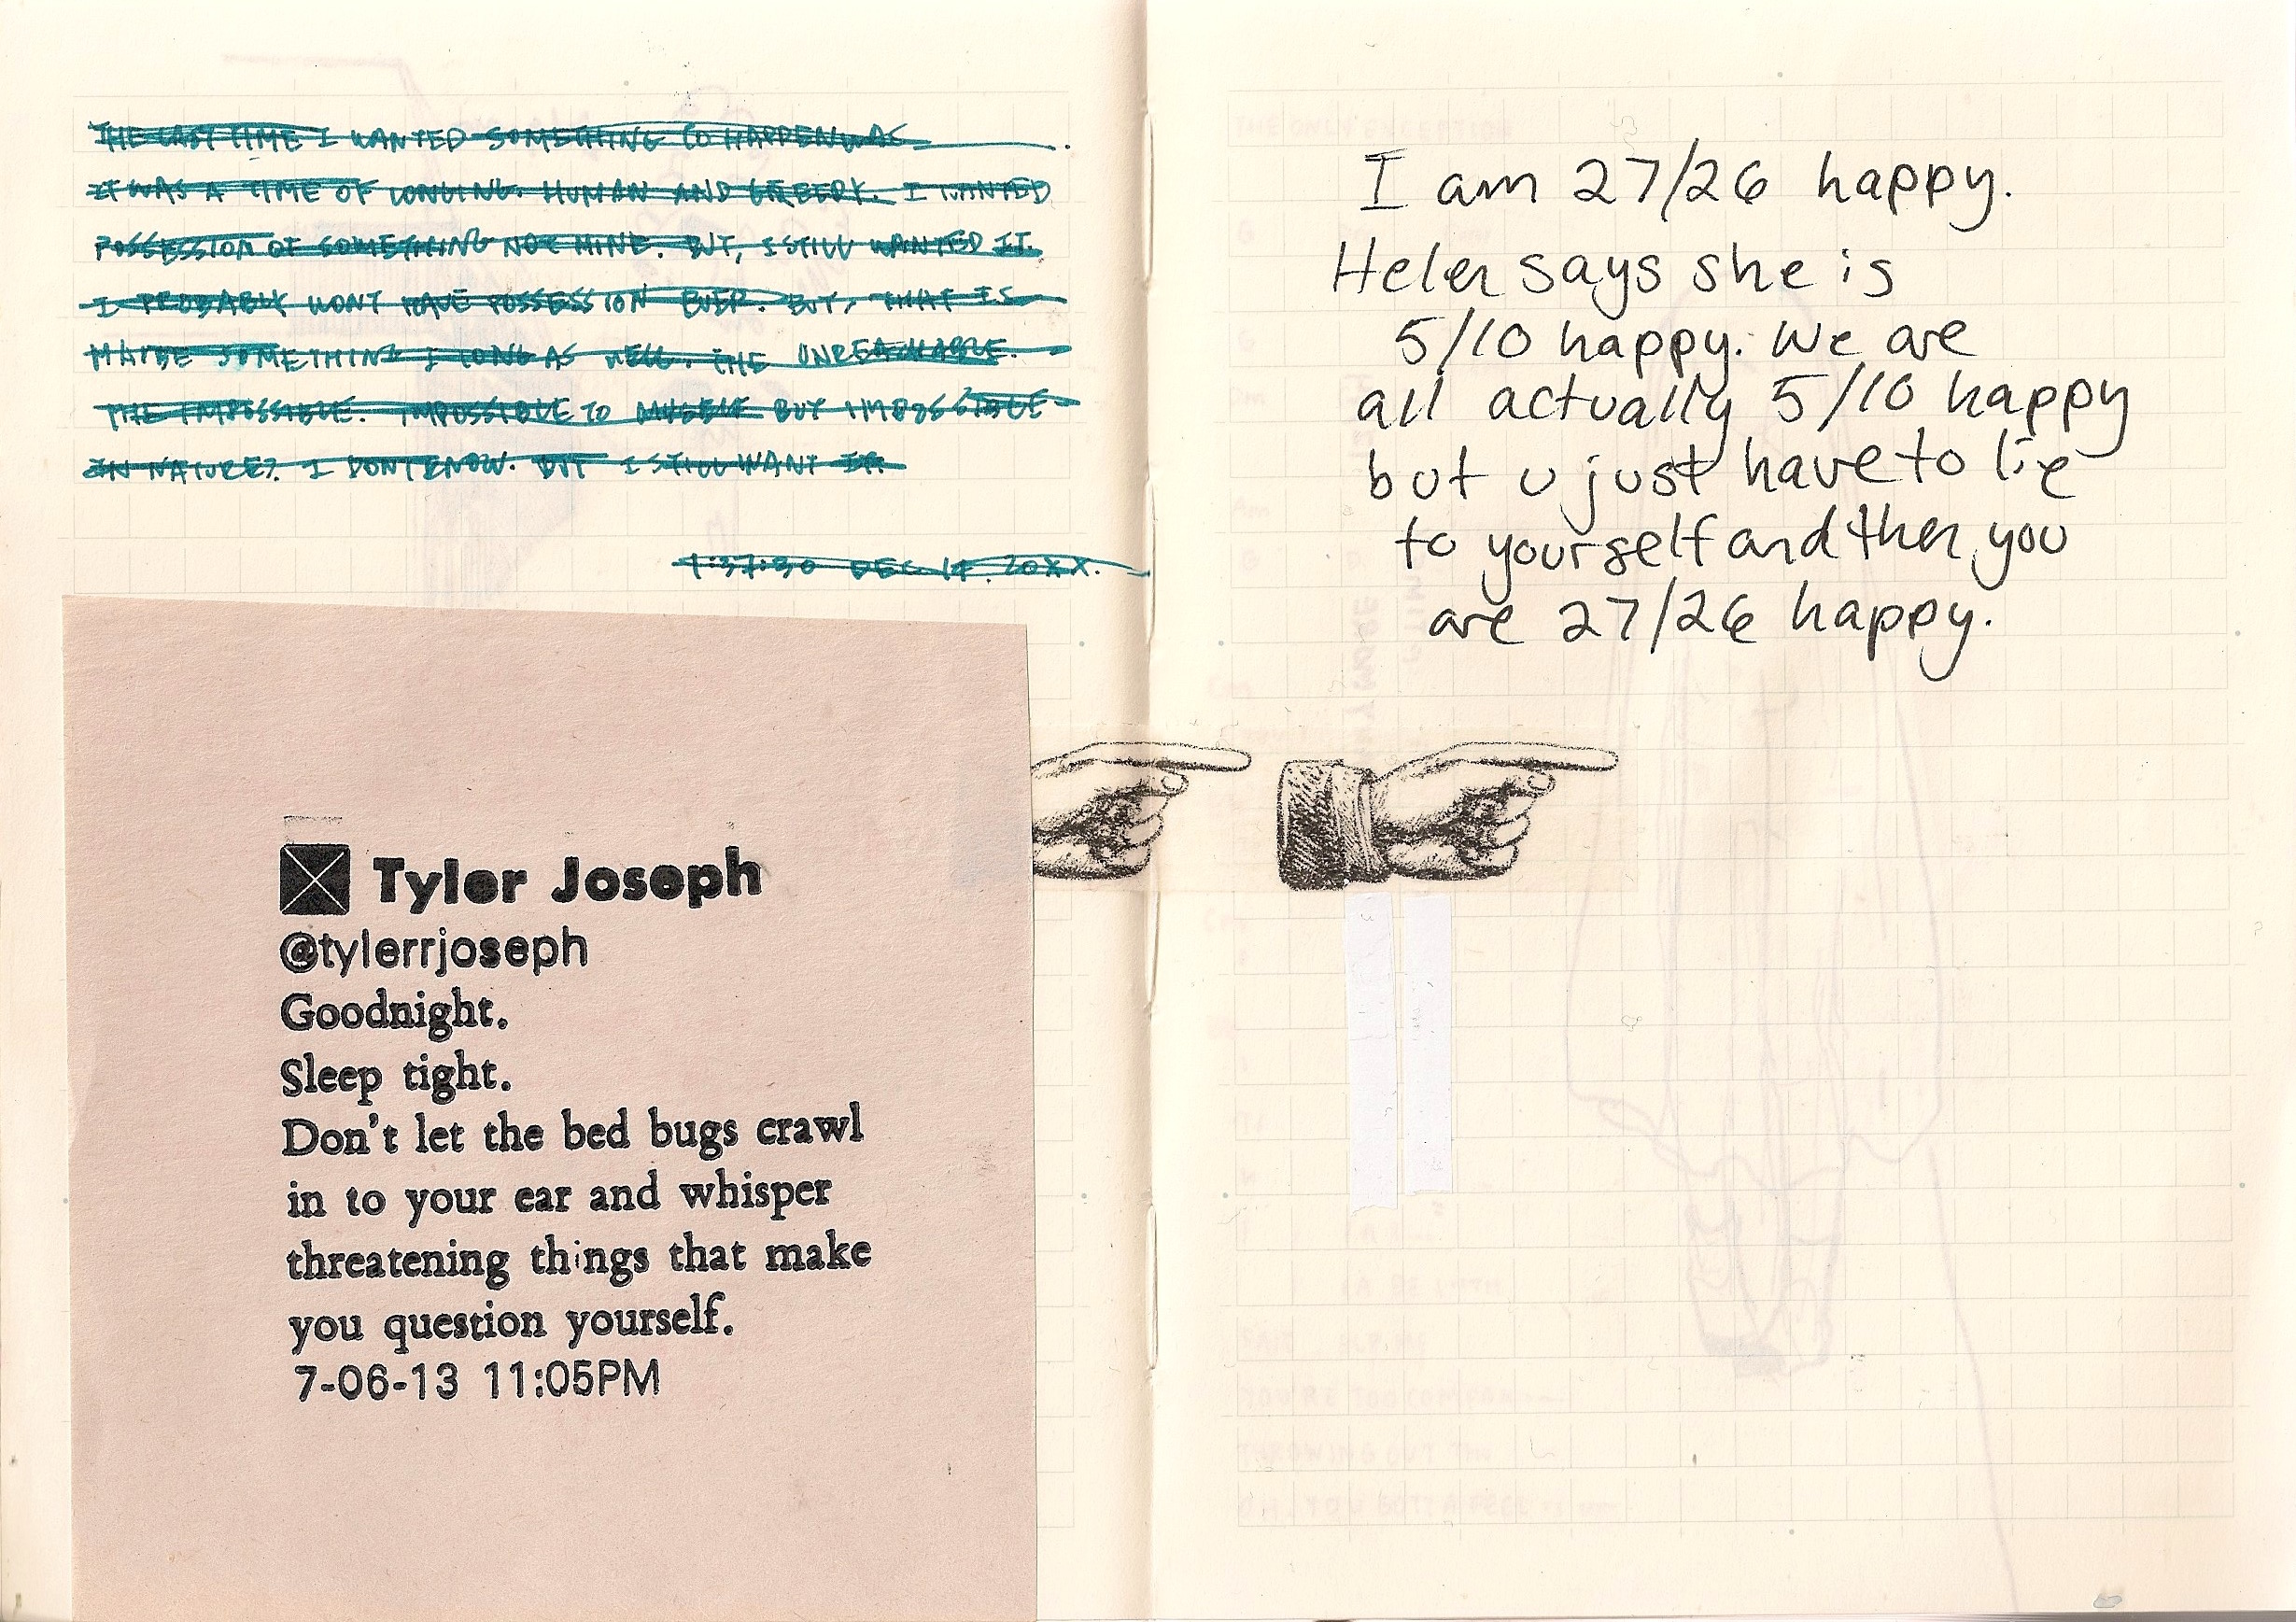 THE LAST TIME I WANTED SOMETHING TO HAPPEN WAS
IT WAS A TIME OF LONGING. HUMAN AND GREEDY. I WANTED
POSSESSION OF SOMETHING NOT MINE. BUT, I STILL WANTED IT.
I PROBABLY WONT HAVE POSSESSION EVER. BUT, THAT IS
MAYBE SOMETHING I LONG AS WELL. THE UNREACHABLE.
THE IMPOSSIBLE. IMPOSSIBLE TO MYSELF BUT IMPOSSIBLE
IN NATURE? I DONT KNOW. BUT I STILL WANT IT.
DEC 14. 20XX.
Tyler Joseph
@tylerrjoseph
Goodnight.
Sleep tight.
Don't let the bed bugs crawl
in to your ear and whisper
threatening things that make
you question yourself.
7-06-13 11:05PM
I am 27/26 happy.
Helen says she is
5/10 happy. We are
all actually 5/10 happy
but u just have to lie
to yourself and then you
are 27/26 happy.